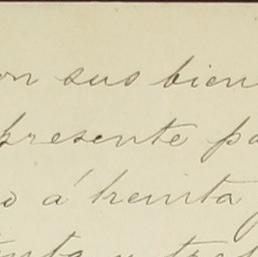 on sus bien
presente pa
o á treinta
nta y tre